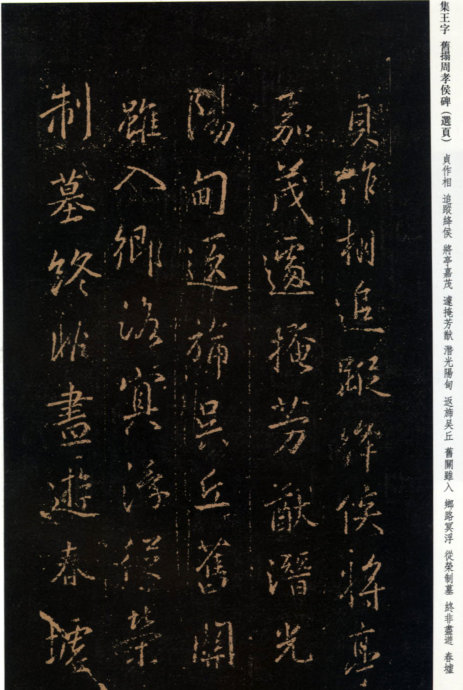 集王字 舊搨周孝侯碑（選頁） 貞作相 追蹤絳侯 將亭嘉茂 遽掩芳猷 潛光陽甸 返旆吴丘 舊關雖入 鄉路冥浮 從榮制墓 終非盡遊 春墟
貞作相追蹤絳侯將亭
嘉茂遽掩芳猷潛光
陽甸返旆吴丘舊關
雖入鄉路冥浮從榮
制墓終非盡遊春墟